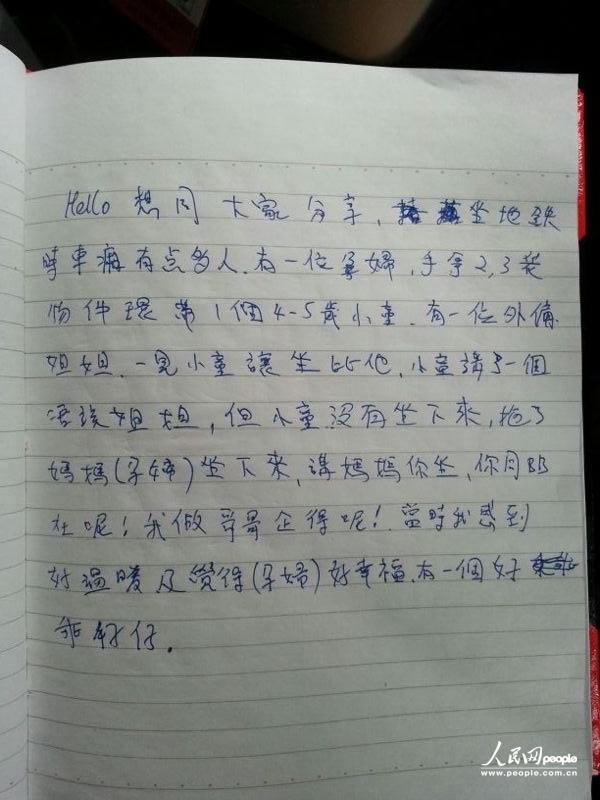 Hello 想同 大家 分享, 坐地鉄
時車廂有点多人.有一位孕婦,手拿2,3袋
物件 第1個4-5歲小童.有一位外傭
姐姐.一見小童讓坐比佢,小童講了一個
唔該姐姐,但小童沒有坐下來,拖了
媽媽(孕婦)坐下來,講媽媽你坐,你有BB
在呢!我做哥哥企得呢!當時我感到
好溫暖及覺得(孕婦)好幸福.有一個好
乖 仔.
人民网people
www.people.com.cn